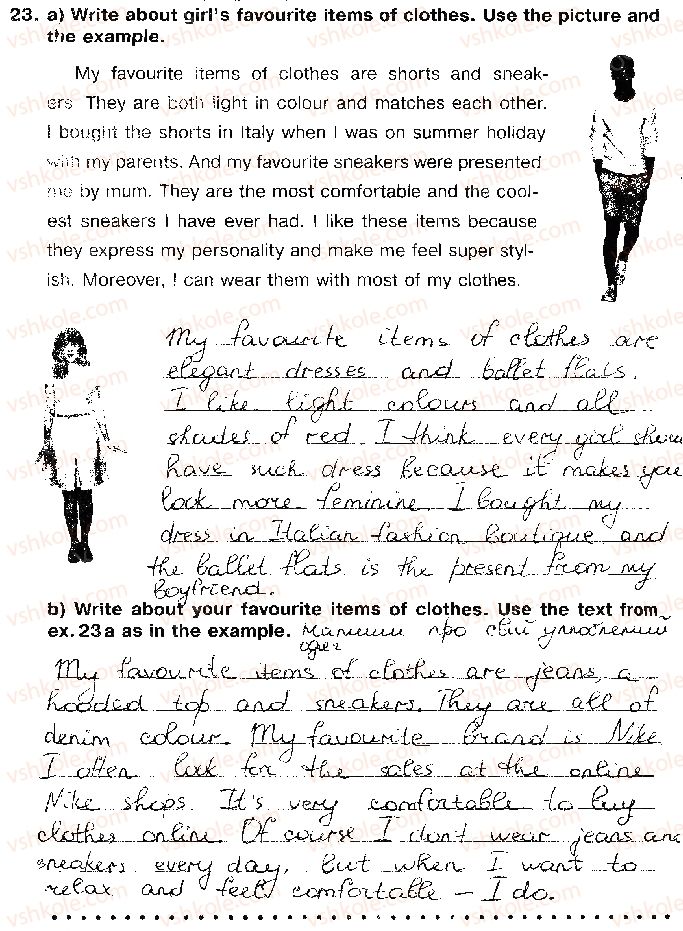 23. a) Write about girl's favourite items of clothes. Use the picture and
the example.
My favourite items of clothes are shorts and sneak-
ers. They are both light in colour and matches each other.
I bought the shorts in Italy when I was on summer holiday
with my parents. And my favourite sneakers were presented
me by mum. They are the most comfortable and the cool-
est sneakers I have ever had. I like these items because
they express my personality and make me feel super styl-
ish. Moreover, I can wear them with most of my clothes.
My favourite items of clothes are
elegant dresses and ballet flats.
I like light colours and all
shades of red. I think every girl shou
have such dress because it makes you
look more feminine. I bought my
dress in Italian fashion boutique and
the ballet flats is the present from my
boyfriend.
b) Write about your favourite items of clothes. Use the text from
ex. 23a as in the example. Напиши про свій улюблений
одяг
My favourite items of clothes are jeans, a
hooded top and sneakers. They are all of
denim colour. My favourite brand is Nike
I often look for the sales at the online
Nike shops. It's very comfortable to buy
clothes online. Of course I don't wear jeans and
sneakers every day, but when I want to
relax and feel comfortable – I do.
vshkole.com